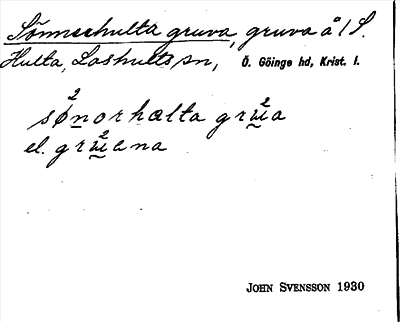 Sönnechulta gruva, gruva å 1/ S.
Hulta, Loshults sn, Ö. Göinge hd, Krist. l.
sø²norhælta grʉ²a
el. grʉ²ana
JOHN SVENSSON 1930